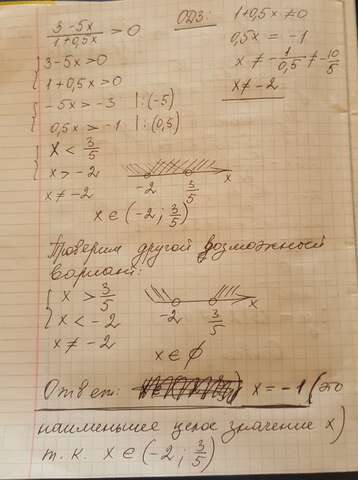 3-5x / 1+0,5x > 0
ОДЗ: 1+0,5x ≠ 0
0,5x = -1
x ≠ -1/0,5 ≠ -10/5
x ≠ -2
{ 3-5x > 0
1+0,5x > 0
{ -5x > -3 | :(-5)
0,5x > -1 | :(0,5)
{ x < 3/5
x > -2
x ≠ -2
-2 3/5 x
x ∈ (-2; 3/5)
Проверим другой возможный
вариант:
{ x > 3/5
x < -2
x ≠ -2
-2 3/5 x
x ∈ ∅
Ответ: x = -1 (это
наименьшее целое значение x)
т.к. x ∈ (-2; 3/5)